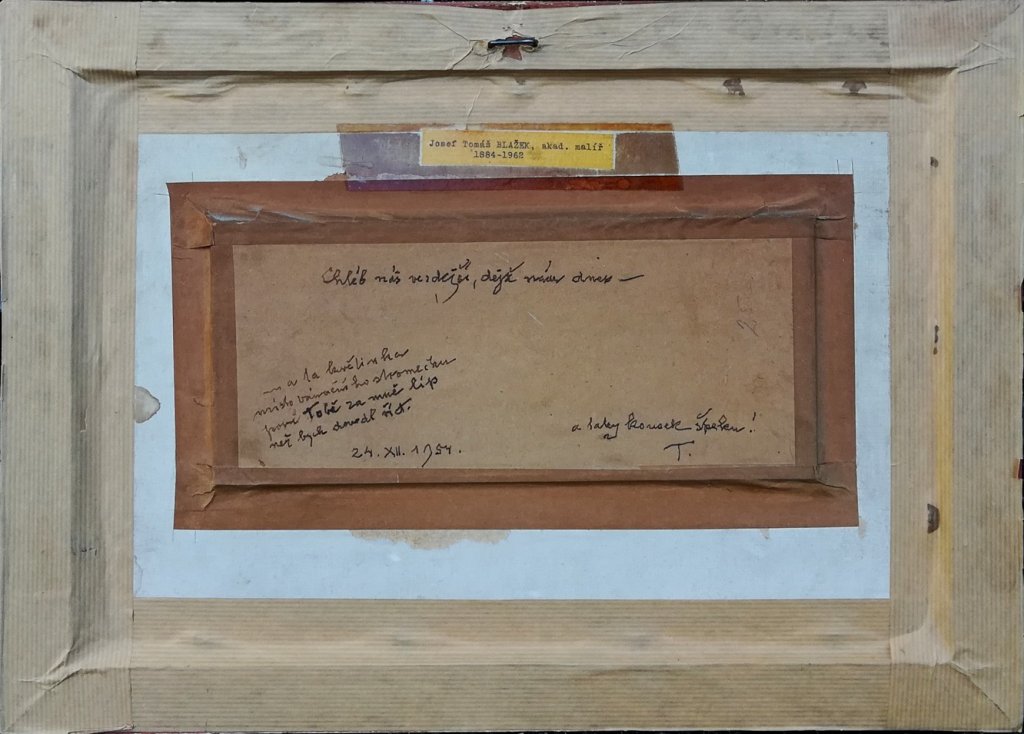 Josef Tomáš BLAŽEK, akad. malíř
1884-1962
Chléb náš vezdejší, dejž nám dnes —
... a ta květinka
místo vánočního stromečku
poví Tobě za mně líp
než bych dovedl říct.
24. XII. 1954.
a taky kousek špeku!
T.